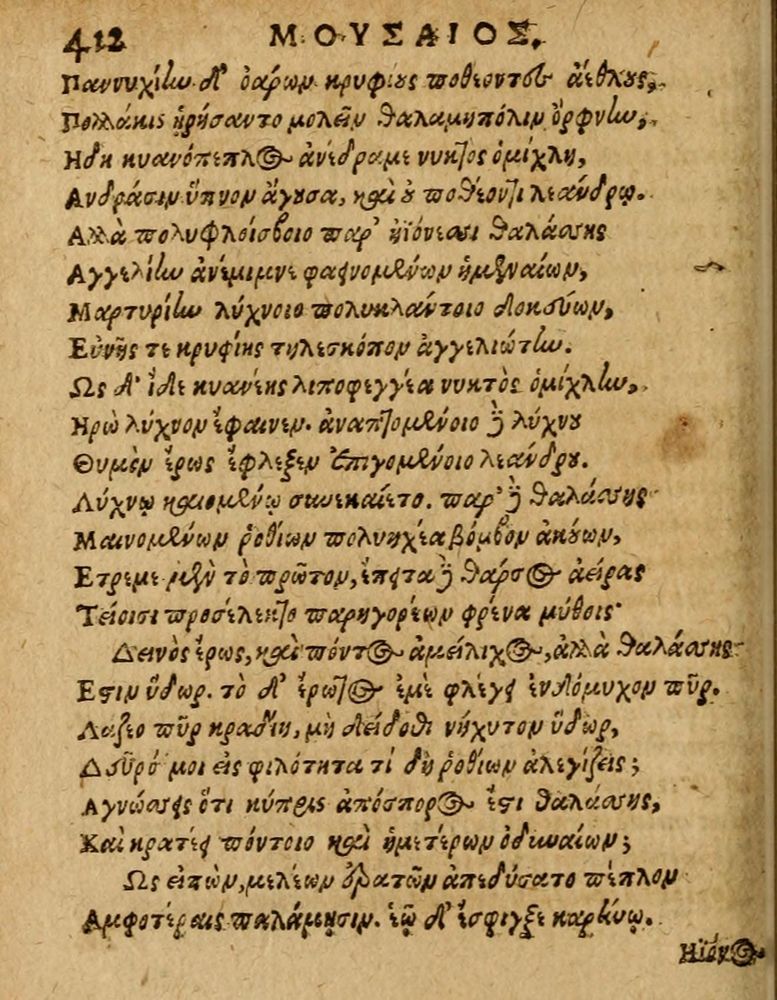 412 ΜΟΥΣΑΙΟΣ.
Παννυχίων δ' ὀάρων κρυφίους ποθέοντες ἀέθλους,
Πολλάκις ἠρήσαντο μολεῖν θαλαμηπόλιν ὄρφνην,
Ηδη κυανόπεπλος ἀνέδραμε νυκτὸς ὁμίχλη,
Ανδράσιν ὕπνον ἄγουσα, καὶ οὐ ποθέοντι λεάνδρῳ.
Αλλὰ πολυφλοίσβοιο παρ' ἠϊόνεσσι θαλάσσης
Αγγελίην ἀνέμιμνε φαεινομένων ὑμεναίων,
Μαρτυρίην λύχνοιο πολυκλαύτοιο δοκεύων,
Εὐνῆς τε κρυφίης τηλεσκόπον ἀγγελιώτην.
Ως δ' ἴδε κυανέης λιποφεγγέα νυκτὸς ὁμίχλην,
Ηρὼ λύχνον ἔφαινεν. ἀναπτομένοιο δὲ λύχνου
Θυμὸν ἔρως ἔφλεξεν ἐπειγομένοιο λεάνδρου.
Λύχνῳ καιομένῳ συνεκαίετο. παρ' δὲ θαλάσσης
Μαινομένων ῥοθίων πολυηχέα βόμβον ἀκούων,
Ετρεμε μὲν τὸ πρῶτον, ἔπειτα δὲ θάρσος ἀείρας
Τείοισι προσέλεκτο παρηγορέων φρένα μύθοις·
Δεινὸς ἔρως, καὶ πόντος ἀμείλιχος, ἀλλὰ θαλάσσης
Εστιν ὕδωρ. τὸ δ' ἔρωτος ἐμὲ φλέγει ἐνδόμυχον πῦρ.
Λάζεο πῦρ κραδίη, μὴ δείδιθι νήχυτον ὕδωρ,
Δεῦρό μοι εἰς φιλότητα τί δὴ ῥοθίων ἀλεγίζεις;
Αγνώσσεις ὅτι κύπρις ἀπόσπορος ἐστὶ θαλάσσης,
Καὶ κρατέει πόντοιο καὶ ἡμετέρων ὀδυνάων;
Ως εἰπὼν, μελέων ἐρατῶν ἀπεδύσατο πέπλον
Αμφοτέραις παλάμῃσιν. ἑῷ δ' ἔσφιγξε καρήνῳ.
Ηϊόνος